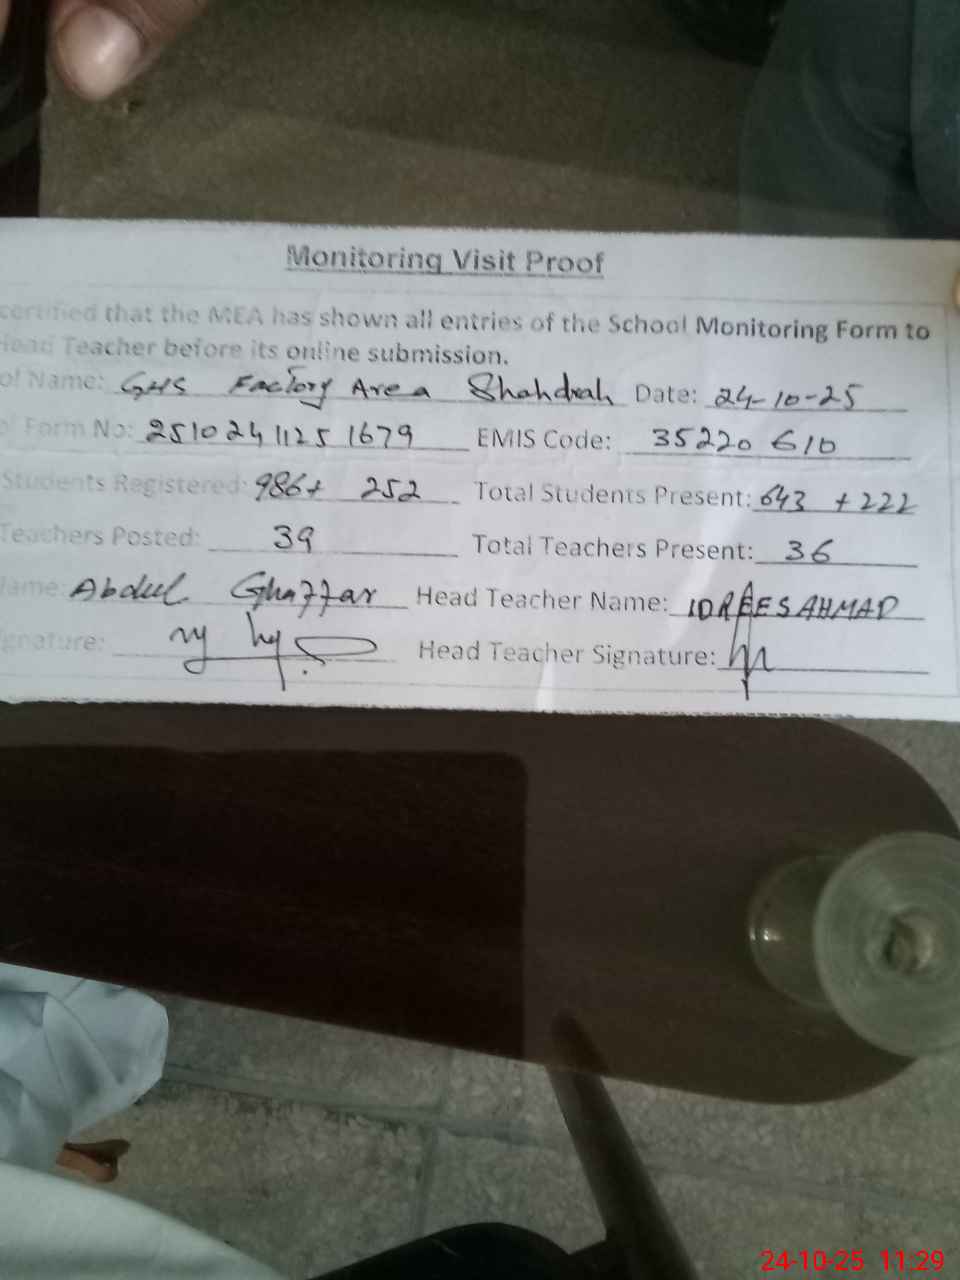 Monitoring Visit Proof
certified that the MEA has shown all entries of the School Monitoring Form to
Head Teacher before its online submission.
ol Name: GHS Factory Area Shahdrah Date: 24-10-25
ol Form No: 251024 1125 1679 EMIS Code: 35220 610
Students Registered: 986+ 252 Total Students Present: 643 + 222
Teachers Posted: 39 Total Teachers Present: 36
Name: Abdul Ghaffar Head Teacher Name: IDREES AHMAD
gnature: Head Teacher Signature:
24-10-25 11:29